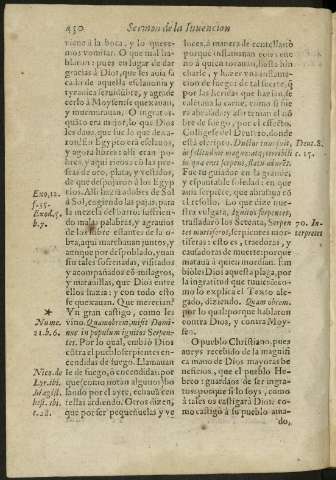 430 Sermon de la Inuencion
viene a la boca, y lo quere-
mos vomitar. O que mal ha-
blaron: pues en lugar de dar
gracias à Dios, que les auia sa
cado de aquella esclauonia y
tyranica seruidumbre, y agrade
cerlo à Moysen se quexauan,
y murmurauan. O ingratos,
quāto era mejor, lo que Dios
les daua, que fue lo que dexa-
ron! En Egypto erā esclauos,
y agora libres: alli eran po-
bres, y aqui ricos cō las pre-
seas de oro, plata, y vestidos,
de que despojaron à los Egip
cios. Alli hazia adobes de Sol
à Sol, cogiendo las pajas, para
la mezcla del barro: sufrien-
do malas palabras, y agrauios
de los sobre estantes de la o-
bra, aqui marchauan juntos, y
aunque por despoblado, y uan
sus tales sossegados, visitados
y acompañados cō milagros,
y marauillas, que Dios entre
ellos hazia: y con todo esto
se quexauan. Que merecian?
Vn gran castigo, como les
vino. Quamobrem, misit Domi-
nus in populum ignitos Serpen-
tes. Por lo qual, embiò Dios
contra el pueblo serpientes en-
cendidas de fuego. Llamanse
de fuego, ò encendidas: por
que (como notan algunos) bo
lando por el ayre, echauā cen
tellas ardiendo. Otros dizen,
que por ser pequeñuelas y ve
Exo, 12.
f. 35.
Exod. 5.
b. 7.
*
Nume.
21. b. 6.
Nico. de
Lyr. ibi.
Magist.
hist. ibi.
c. 28.
luces, à manera de
porque inflamauan este vene
no à quien tocauan, hasta hin
charle, y hazer vna inflama-
cion de fuego de tal suerte, q̄
por las heridas que hazian, se
calentaua la carne, como si fue
ra abrasada; y assi tenian el nō
bre de fuego, por el effecto.
Collige se del Deutero. donde
està escripto. Ductor tuus fuit,
in solitudine magna, atq; terribili
in qua erat serpens, flatu adurēs.
Fue tu guiador en la grande,
y espantable soledad: en que
auia serpiente, que abrasaua cō
el resollo. Lo que dize nue-
stra vulgata, Ignitos serpentes,
trasladarō los Setenta, Serpen
tes mortiferos, serpientes mor-
tiferas: esto es, traedoras, y
causadoras de muerte: porque
mataua à quien mordian. Em
biòles Dios aquesta plaga, por
la ingratitud que tuuieró: co-
mo lo explica el Texto ale-
gado, diziendo. Quam obrem.
por lo qual: porque hablaron
contra Dios, y contra Moy-
sen.
O pueblo Christiano, pues
aueys recebido de la magnifi
ca mano de Dios mayores be
neficios, que el pueblo He-
breo: guardaos de ser ingra-
tos: porque si lo soys, como
à tales os castigarà Dios: co-
mo castigò à su pueblo ama-
do,
Deut. 8.
c. 15.
70. In-
terpretes